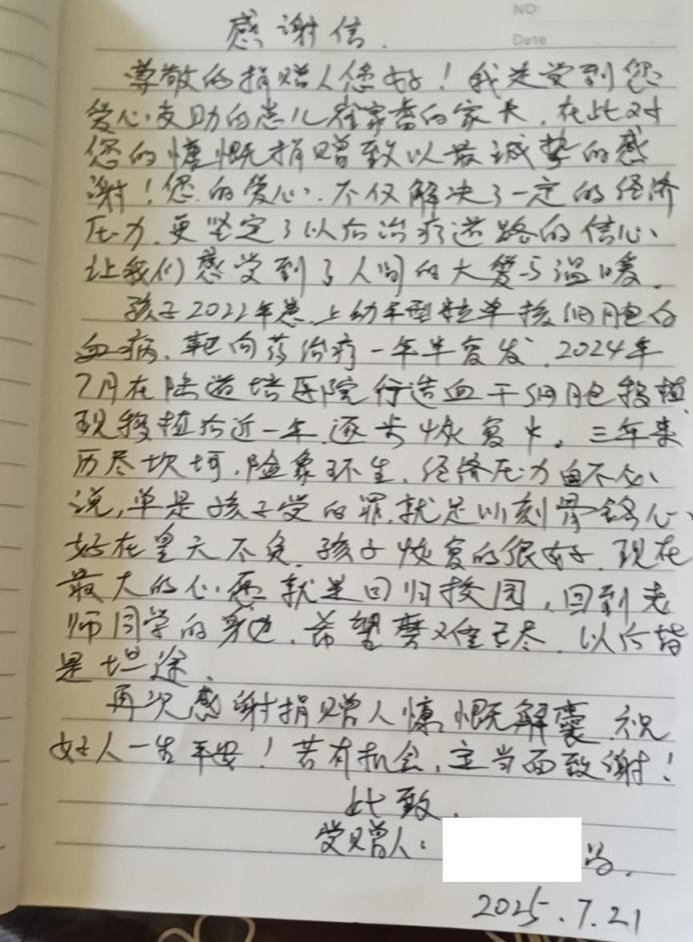 NO:
Date
感谢信.
尊敬的捐赠人您好！我是受到您
爱心支助的患儿崔家睿的家长，在此对
您的慷慨捐赠致以最诚挚的感
谢！您的爱心、不仅解决了一定的经济
压力，更坚定了以后治疗道路的信心、
让我们感受到了人间的大爱与温暖。
孩子2022年患上幼年型粒单核细胞白
血病，靶向药治疗一年半复发，2024年
7月在陆道培医院行造血干细胞移植，
现移植后近一年逐步恢复中。三年来
历尽坎坷，险象环生，经济压力自不必
说，单是孩子受的罪，就足以刻骨铭心、
好在皇天不负，孩子恢复的很好，现在
最大的心愿就是回归校园，回到老
师同学的身边，希望磨难已尽，以后皆
是坦途。
再次感谢捐赠人慷慨解囊 祝
好人一生平安！若有机会，定当面致谢！
此致，
受赠人：
2025.7.21